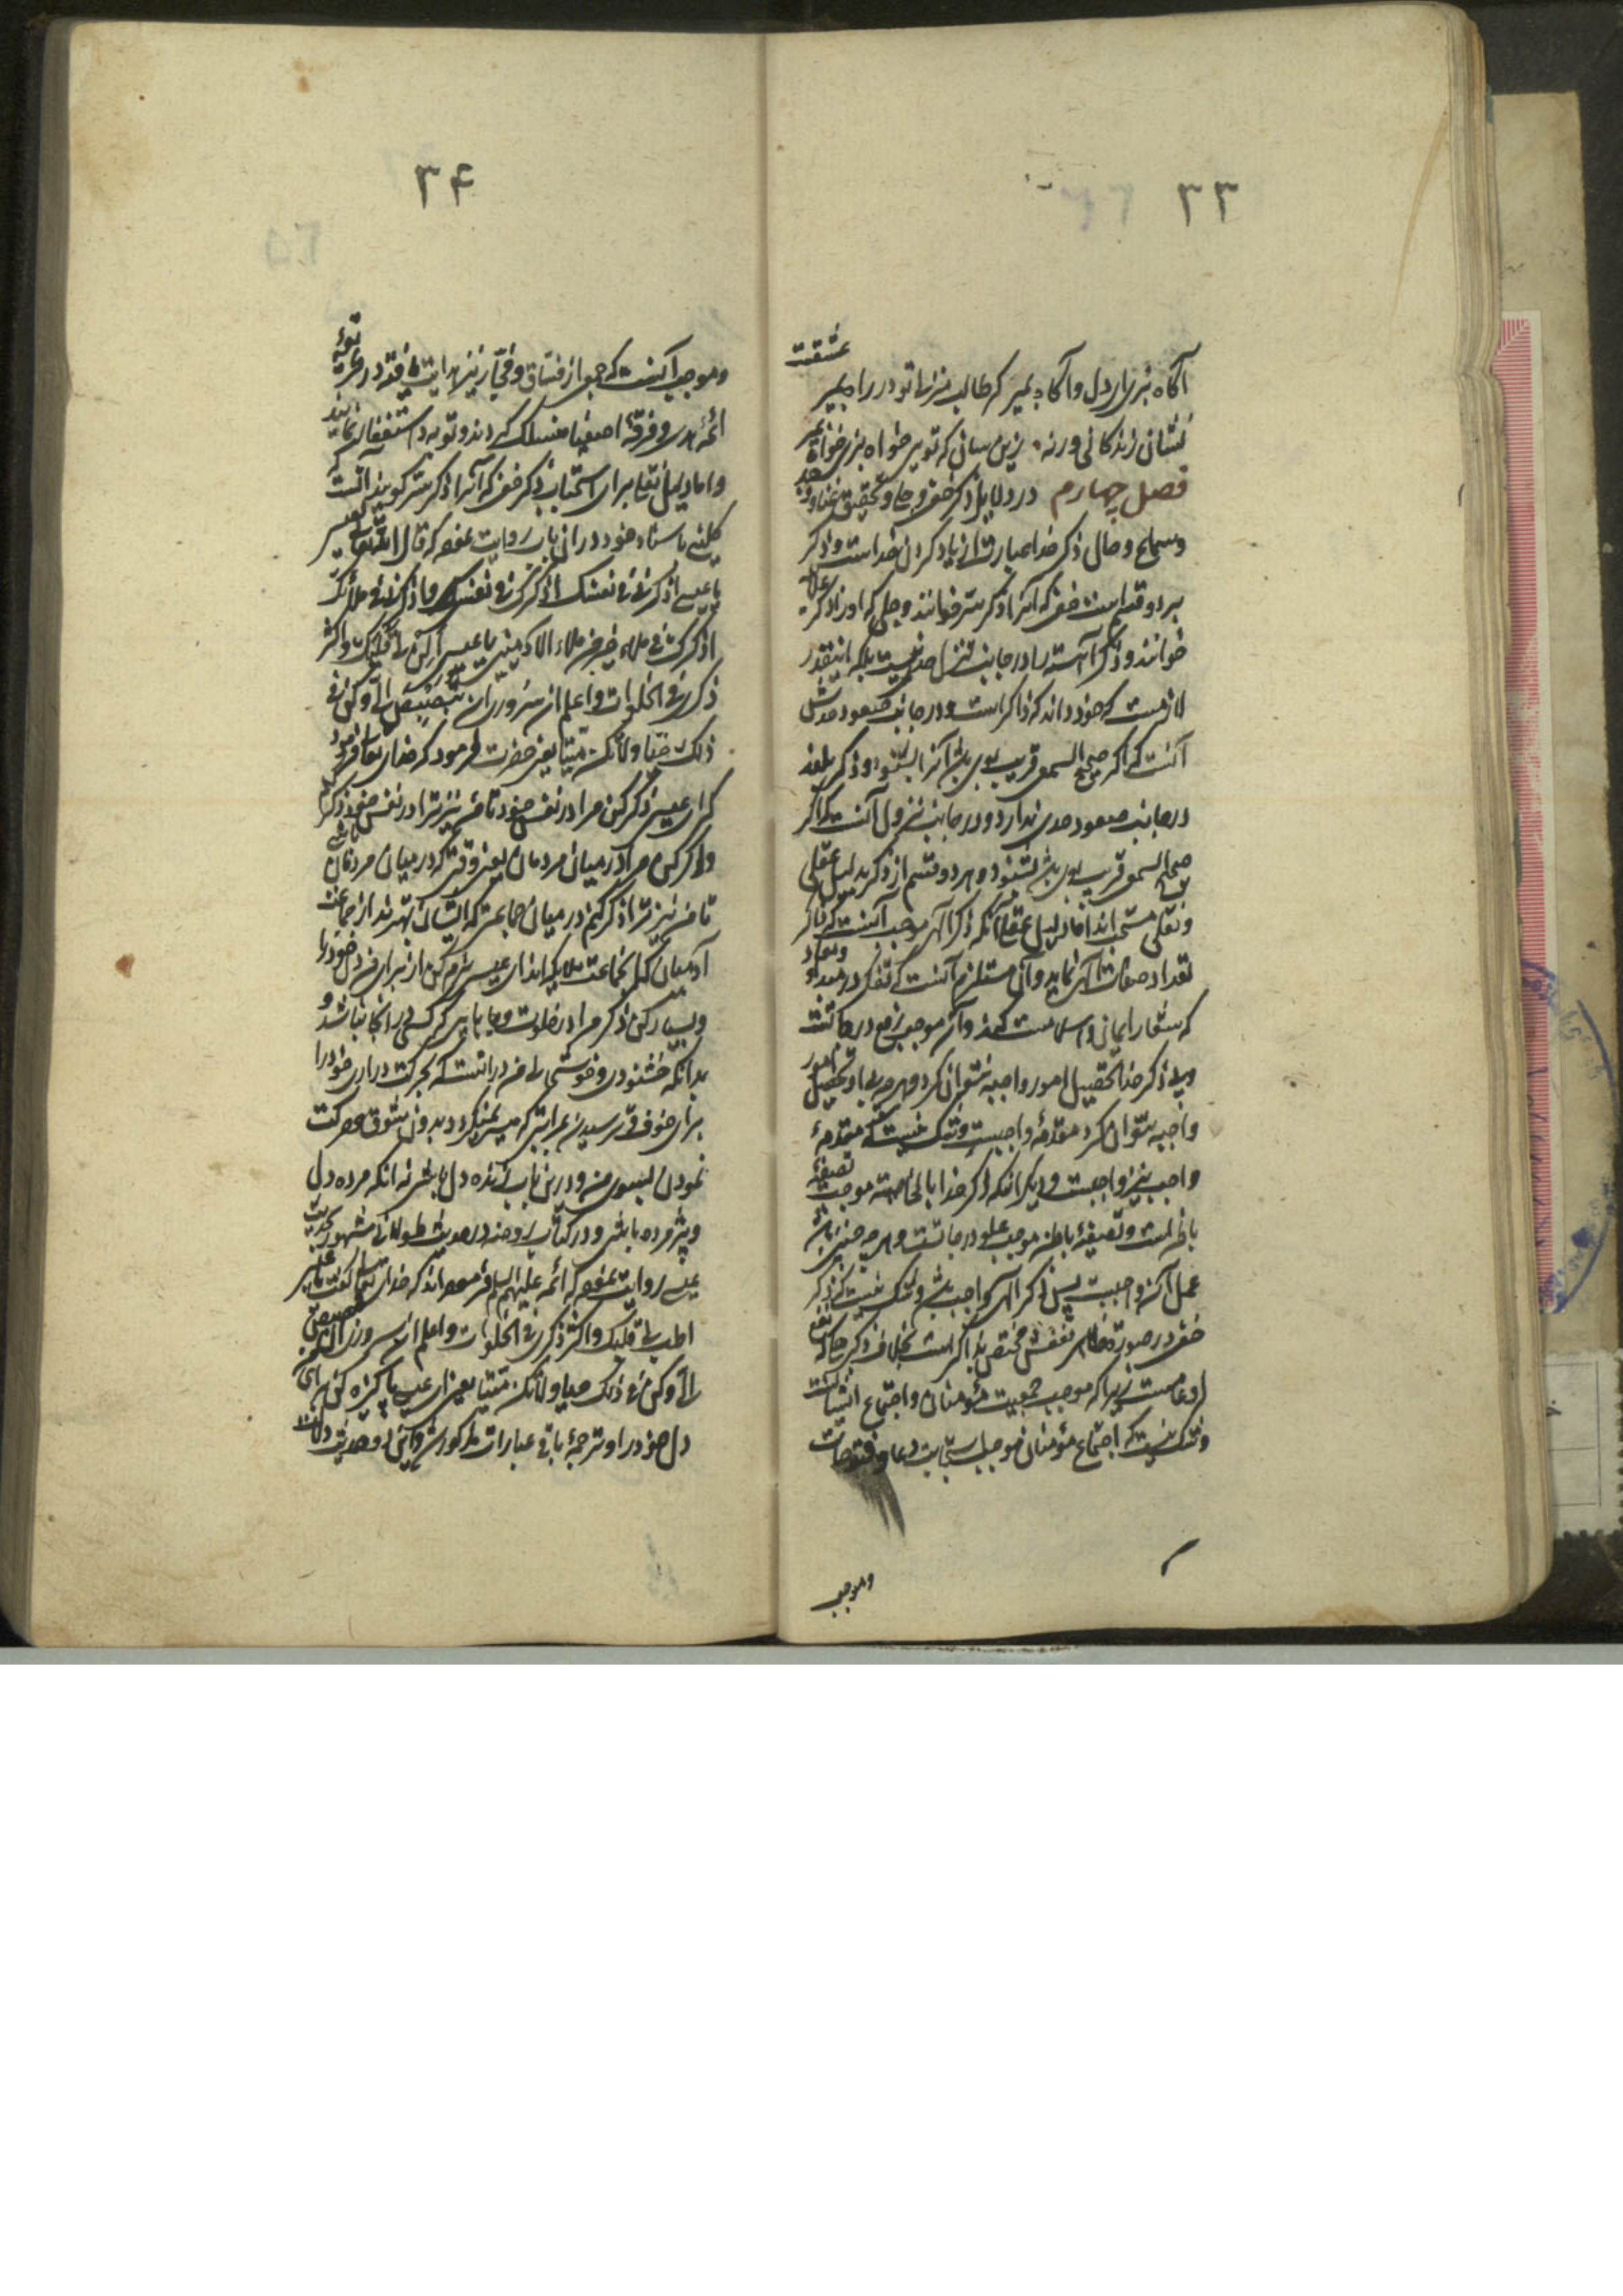 ۳۳
عشقت
آگاه بزی ار دل و آگاه بمیر که طالب منزلی تو در راه بمیر
نشان زندگانی ورنه زین سان که تویی خواه بزی خواه بمیر
فصل چهارم در دلایل ذکر خفی و جلی و تحقیق غنا و وجد
و سماع و حال ذکر خدا عبارت از یاد کردن خداست و ذکر
بر دو قسم است خفی که آنرا ذکر سر خوانند و جلی که او را ذکر علانیه
خوانند و ذکر آهسته را در جانب تنزل حدی نیست بلکه اینقدر
لازمست که خود داند که ذاکر است و در جانب صعود حدش
آنست که اگر صحیح السمع قریب بوی باشد آنرا بشنود و ذکر بلند
در جانب صعود حدی ندارد و در جانب نزول آنست که اگر
صحیح السمع قریب بوی باشد بشنود و هر دو قسم از ذکر بدلیل عقلی
و نقلی مستحب‌اند اما دلیل عقلی آنکه ذکر الهی موجب آنست که ذاکر
تعداد صفات الهی نماید و آن مستلزم آنست که تفکر در مبدء و معاد
که شعار ایمان و اسلامست کند و آن موجب رفع درجاتست
و بی ذکر خدا تحصیل امور واجبه نتوان کرد و هر چه بی او تحصیل امور
واجبه نتوان کرد مقدمه واجبست و شک نیست که مقدمهٔ
واجب نیز واجبست و دیگر آنکه ذکر خدا بالخاصه موجب تصفیهٔ
باطن است و تصفیهٔ باطن موجب علو درجاتست و هر چه چنین باشد
عمل آن واجبست پس ذکر الهی واجب باشد و شک نیست که ذکر
خفی در صورة نفعش مختص بذاکر است بخلاف ذکر جلی که نفع
او عامست زیرا که موجب جمعیت مؤمنان و اجتماع ایشانست
و شک نیست که اجتماع مؤمنان موجب استجابت دعا و فتوحات
و موجب
۳۴
و موجب آنست که جمعی از فساق و فجار نیز هدایت یافته در
ائمه هدی و فرقهٔ اصفیا منسلک گردند و توبه و استغفار نمایند
و اما دلیل نقلی برای استحباب ذکر خفی که آنرا ذکر سر گویند آنست که
کلینی باسناد خود در آن باب روایت نموده که قال الله تعالی لعیسی
یا عیسی اذکرنی فی نفسک اذکرک فی نفسی و اذکرنی فی ملائک
اذکرک فی ملاء خیر من ملاء الآدمیین یا عیسی الن لی قلبک و اکثر
ذکری فی الخلوات و اعلم ان سروری ان تبصبص الی و کن فی
ذلک حیا ولا تکن میتا یعنی حضرت فرمود که خدای تعالی فرمود
که ای عیسی ذکر کن مرا در نفس خود تا من نیز ترا در نفس خود ذکر کنم
و ذکر کن مرا در میان مردمان یعنی وقتی که در میان مردمان باشی
تا من نیز ترا ذکر کنم در میان جماعتی که ایشان بهترند از جماعت
آدمیان که آنجماعت ملایکه‌اند ای عیسی نرم کن از برای من دل خود را
و بسیار کن ذکر مرا در خلوت و جایی که کسی در آنجا نباشد و
بدانکه خشنودی و خوشحالی من در آنست که بحرکت در آری خود را
برای خوف و ترسیدن بدون شوق و حرکت
نمودن بسوی من و درین باب زنده دل باش نه آنکه مرده دل
و پژمرده باشی و در کتاب روضه در حدیث طولانی مشهور بحدیث
عیسی روایت نموده که ائمه علیهم السلام فرموده‌اند که خدای تعالی گفت یا عیسی
اطب لی قلبک و اکثر ذکری فی الخلوات و اعلم ان سروری ان تبصبص
الی و کن فی ذلک حیا ولا تکن میتا یعنی ای عیسی پاکیزه کن برای
دل خود را و ترجمهٔ باقی عبارات مذکور شد و این دو حدیث دلالت